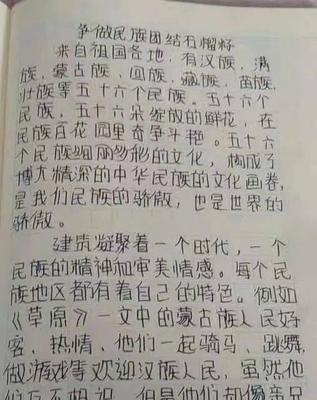 争做民族团结石榴籽
来自祖国各地，有汉族，满
族，蒙古族，回族，藏族，苗族，
壮族等五十六个民族。五十六个
民族，五十六朵绽放的鲜花，在
民族百花园里奇争斗艳。五十六
个民族绚丽多彩的文化，构成了
博大精深的中华民族的文化画卷，
是我们民族的骄傲，也是世界的
骄傲。
建筑凝聚着一个时代，一个
民族的精神和审美情感。每个民
族地区都有着自己的特色。例如
《草原》一文中的蒙古族人民好
客、热情、他们一起骑马、跳舞，
做游戏等欢迎汉族人民，虽然他
们互不相识，但是他们却像亲兄